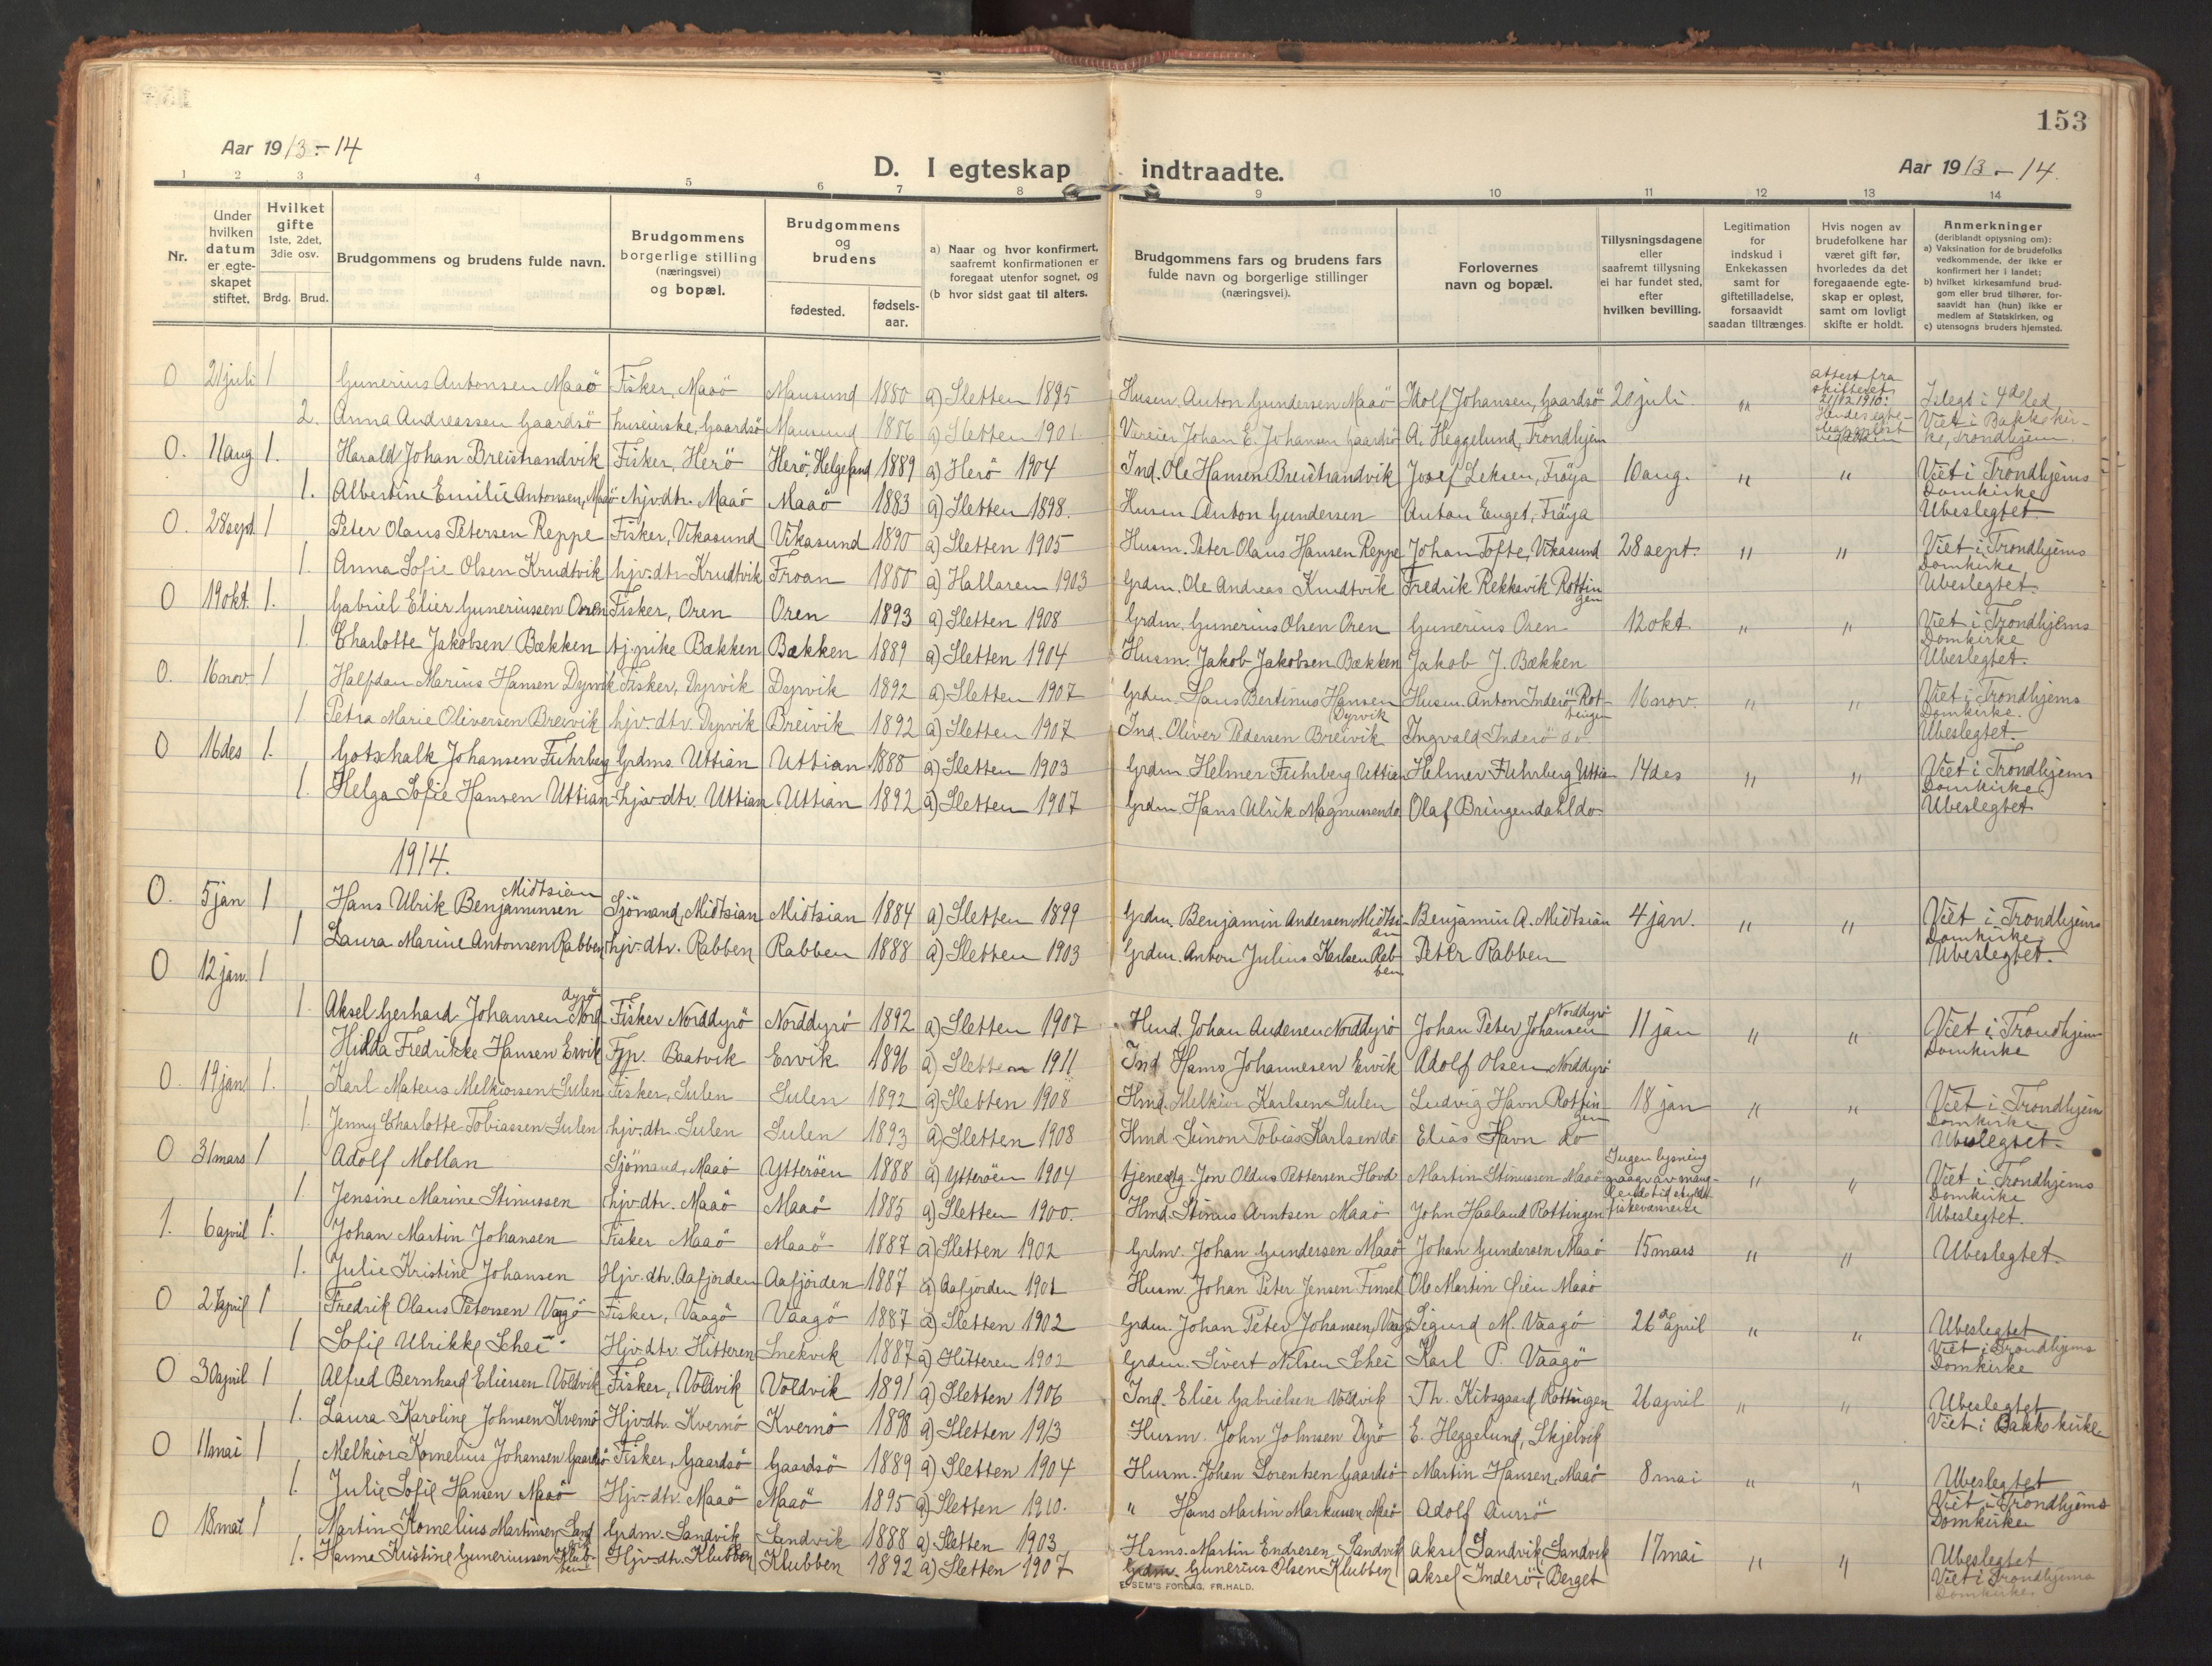 153
Aar 1913.-14
D. I egteskap indtraadte.
Aar 1913.-14.
1 2 3 4 5 6 7 8 9 10 11 12 13 14
Nr.
Under hvilken datum er egteskapet stiftet.
Hvilket gifte 1ste, 2det, 3die osv.
Brdg. Brud.
Brudgommens og brudens fulde navn.
Brudgommens borgerlige stilling (næringsvei) og bopæl.
Brudgommens og brudens
fødested. fødselsaar.
a) Naar og hvor konfirmert, saafremt konfirmationen er foregaat utenfor sognet, og (b hvor sidst gaat til alters.
Brudgommens fars og brudens fars fulde navn og borgerlige stillinger (næringsvei).
Forlovernes navn og bopæl.
Tillysningsdagene eller saafremt tillysning ei har fundet sted, efter hvilken bevilling.
Legitimation for indskud i Enkekassen samt for giftetilladelse, forsaavidt saadan tiltrænges.
Hvis nogen av brudefolkene har været gift før, hvorledes da det foregaaende egteskap er opløst, samt om lovligt skifte er holdt.
Anmerkninger (deriblandt oplysning om): a) Vaksination for de brudefolks vedkommende, der ikke er konfirmert her i landet; b) hvilket kirkesamfund brudgom eller brud tilhører, forsaavidt han (hun) ikke er medlem af Statskirken, og c) utensogns bruders hjemsted.
0 21 juli 1 Gunerius Antonsen Maaö Fisker, Maaö Mausund 1880 a) Sletten 1895 Husm. Anton Gundersen Maaö Adolf Johansen, Gaardsö 20 juli " Attest fra skifteret 21/12 1910: I slegt i 4de led
2. Anna Andreassen Gaardsö huseierske, Gaardsö Mausund 1886 a) Sletten 1901 Vareier Johan E. Johansen Gaardsö A. Heggelund, Trondhjem Viet i Bakke kirke, Trondhjem.
0. 11 aug 1. Harald Johan Breistrandvik Fisker, Herö Herö, Helgeland 1889 a) Herö 1904 Ind. Ole Hansen Breistrandvik Josef Leksen, Fröya 10 aug. " " Viet i Trondhjems Domkirke
1. Albertine Emilie Antonsen, Maaö hjv. dtr. Maaö Maaö 1883 a) Sletten 1898. Husm Anton Gundersen Anton Enget, Fröya Ubeslegtet
0. 28 sept. 1 Peter Olaus Petersen Reppe Fisker, Vikasund Vikasund 1890 a) Sletten 1905 Husm. Peter Olaus Hansen Reppe Johan Tofte, Vikasund 28 sept. " " Viet i Trondhjems Domkirke
1. Anna Sofie Olsen Krudtvik hjv. dtr Krudtvik Froan 1880 a) Hallaren 1903 Grdm. Ole Andreas Krudtvik Fredrik Rekkavik Rottingen Ubeslegtet.
0 19 okt. 1. Gabriel Elier Guneriussen Oren Fisker, Oren Oren 1893 a) Sletten 1908 Grdm. Gunerius Olsen Oren Gunerius Oren 12 okt " " Viet i Trondhjems Domkirke
1. Charlotte Jakobsen Bækken tj. pike Bækken Bækken 1889 a) Sletten 1904 Husm. Jakob Jakobsen Bækken Jakob J. Bækken Ubeslegtet.
0. 16 nov 1 Halfdan Marius Hansen Dyrvik Fisker, Dyrvik Dyrvik 1892 a) Sletten 1907 Grdm. Hans Bertinus Hansen Dyrvik Husm. Anton Inderö Rottingen 16 nov. " " Viet i Trondhjems Domkirke.
1 Petra Marie Oliversen Breivik hjv. dtr. Dyrvik Breivik 1892 a) Sletten 1907 Ind. Oliver Pedersen Breivik Ingvald Inderö do. Ubeslegtet.
0 16 des 1. Gotschalk Johansen Fuhrberg Grdms Uttian Uttian 1888 a) Sletten 1903 Grdm. Helmer Fuhrberg Uttian Helmer Fuhrberg Uttia 14 des " " Viet i Trondhjems Domkirke
1. Helga Sofie Hansen Uttian hjv. dtr. Uttian Uttian 1892 a) Sletten 1907 Grdm. Hans Ulrik Magnussen do Olaf Bringendahl do. Ubeslegtet
1914.
0. 5 jan 1 Hans Ulrik Benjaminsen Midtsian Sjömand, Midtsian Midtsian 1884 a) Sletten 1899 Grdm. Benjamin Andersen Midtsian Benjamin A. Midtsian 4 jan. " " Viet i Trondhjems Domkirke
1 Laura Marine Antonsen Rabben hjv. dtr. Rabben Rabben 1888 a) Sletten 1903 Grdm. Anton Julius Karlsen Rabben Peter Rabben Ubeslegtet.
0 12 jan. 1
1. Aksel Gerhard Johansen Norddyrö Fisker Norddyrö Norddyrö 1892 a) Sletten 1907 Hmd. Johan Andersen Norddyrö Johan Peter Johansen Norddyrö 11 jan " " Viet i Trondhjem Domkirke
Hilda Fredrikke Hansen Ervik Tjp. Baatvik Ervik 1896 a) Sletten 1911 Ind Hans Johannesen Ervik Adolf Olsen Norddyrö
0. 19 jan 1. Karl Mateus Melkiorsen Sulen Fisker, Sulen Sulen 1892 a) Sletten 1908 Hmd. Melkior Karlsen Sulen Ludvig Havn Rottingen 18 jan " " Viet i Trondhjem Domkirke
1. Jenny Charlotte Tobiassen Sulen hjv. dtr. Sulen Sulen 1893 a) Sletten 1908 Hmd Simon Tobias Karlsen do Elias Havn do Ubeslegtet
0 31 mars 1 Adolf Mollan Sjömand, Maaö Ytteröen 1888 a) Ytteröen 1904 tjenestg. Jon Oldus Pettersen Hovd Martin Stinussen Maaö Ingen lysning paagr. av manglende tid skyldt fiskeværreise " " Viet i Trondhjems Domkirke
1. Jensine Marine Stinussen hjv. dtr. Maaö Maaö 1885 a) Sletten 1900. Hmd. Stinus Arntsen Maaö John Haaland Rottingen Ubeslegtet.
1. 6 april 1. Johan Martin Johansen Fisker Maaö Maaö 1887 a) Sletten 1902 Grdm. Johan Gundersen Maaö Johan Gundersen Maaö 15 mars " " Ubeslegtet.
1. Julie Kristine Johansen Hjv. dtr. Aafjorden Aafjorden 1887 a) Aafjorden 1901 Husm. Johan Peter Jensen Finset Ole Martin Maaö
0 27 april 1 Fredrik Olaus Petersen Vaagö Fisker, Vaagö Vaagö 1887 a) Sletten 1902 Grdm. Johan Peter Johansen Vaag Sigurd M. Vaagö 26 april " " Ubeslegtet
1 Sofie Ulrikke Schei Hjv. dtr. Hitteren Snekvik 1887 a) Hitteren 1902 Grdm. Sivert Nilsen Schei Karl P. Vaagö Viet i Trondhjems Domkirke
0 30 april 1 Alfred Bernhard Eliersen Voldvik Fisker, Voldvik Voldvik 1891 a) Sletten 1906 Ind. Elier Gabrielsen Voldvik Th. Kibsgaard Rottingen 26 april " " Ubeslegtet
1. Laura Karoline Johnsen Kvernö Hjv. dtr. Kvernö Kvernö 1898 a) Sletten 1913 Husm. John Johnsen Dyrö E. Heggelund, Skjelvik Viet i Bakke kirke
0 11 mai 1 Melkior Kornelius Johansen Gaardsö Fisker, Gaardsö Gaardsö 1889 a) Sletten 1904 Husm. Johan Lorentsen Gaardsö Martin Hansen, Maaö 8 mai " " Ubeslegtet
1. Julie Sofie Hansen Maaö Hjv. dtr. Maaö Maaö 1895 a) Sletten 1910. " Hans Martin Markussen Maaö Adolf Aursö Viet i Trondhjems Domkirke
0 18 mai 1 Martin Kornelius Martinsen Sandvik Grdm. Sandvik Sandvik 1888 a) Sletten 1903 Hsms. Martin Endresen Sandvik Aksel Sandvik, Sandvik 17 mai " " Ubeslegtet
1. Hanne Kristine Guneriussen Klubben Hjv. dtr. Klubben Klubben 1892 a) Sletten 1907 Grdm. Gunerius Olsen Klubben Aksel Inderö, Berget Viet i Trondhjems Domkirke.
E. SEM'S FORLAG, FR.HALD.